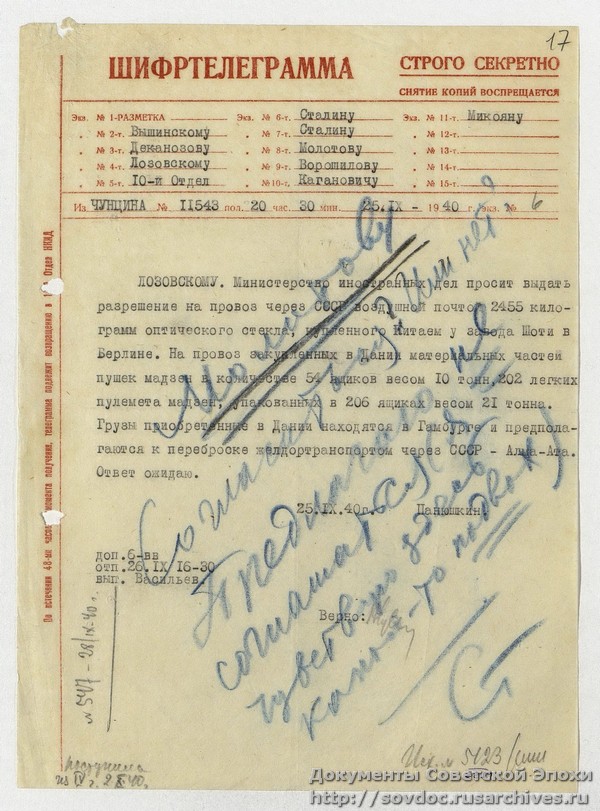 17
ШИФРТЕЛЕГРАММА
СТРОГО СЕКРЕТНО
СНЯТИЕ КОПИЙ ВОСПРЕЩАЕТСЯ
Экз. № 1-РАЗМЕТКА Экз. № 6-г. Сталину Экз. № 11-г. Микояну
№ 2-г. Вышинскому № 7-г. Сталину № 12-г.
№ 3-г. Деканозову № 8-г. Молотову № 13-г.
№ 4-г. Лозовскому № 9-г. Ворошилову № 14-г.
№ 5-г. 10-й Отдел №10-г. Кагановичу № 15-г.
Из ЧУНЦИНА № 11543 пол. 20 час. 30 мин. 25.IX - 1940 г. экз. № 6
По истечении 48-ми часов с момента получения, телеграмма подлежит возвращению в Отдел НКИД
ЛОЗОВСКОМУ. Министерство иностранных дел просит выдать
разрешение на провоз через СССР воздушной почтой 2455 кило-
грамм оптического стекла, купленного Китаем у завода Шоти в
Берлине. На провоз закупленных в Дании материальных частей
пушек мадзен в количестве 54 ящиков весом 10 тонн, 202 легких
пулемета мадзен, упакованных в 206 ящиках весом 21 тонна.
Грузы приобретенные в Дании находятся в Гамбурге и предпола-
гаются к переброске желдортранспортом через СССР - Алма-Ата.
Ответ ожидаю.
25.IX.40г. Панюшкин
Молотову
Согласиться? Или нет?
Предлагаю не
соглашаться
чувствую здесь
какой-то подвох)
доп.6-вв
отп.26.IX 16-30
вып. Васильев.
Верно:
№ 547 - 28/IX-40 г.
поступила
Исх. № 5123/
Документы Советской Эпохи
http://sovdoc.rusarchives.ru